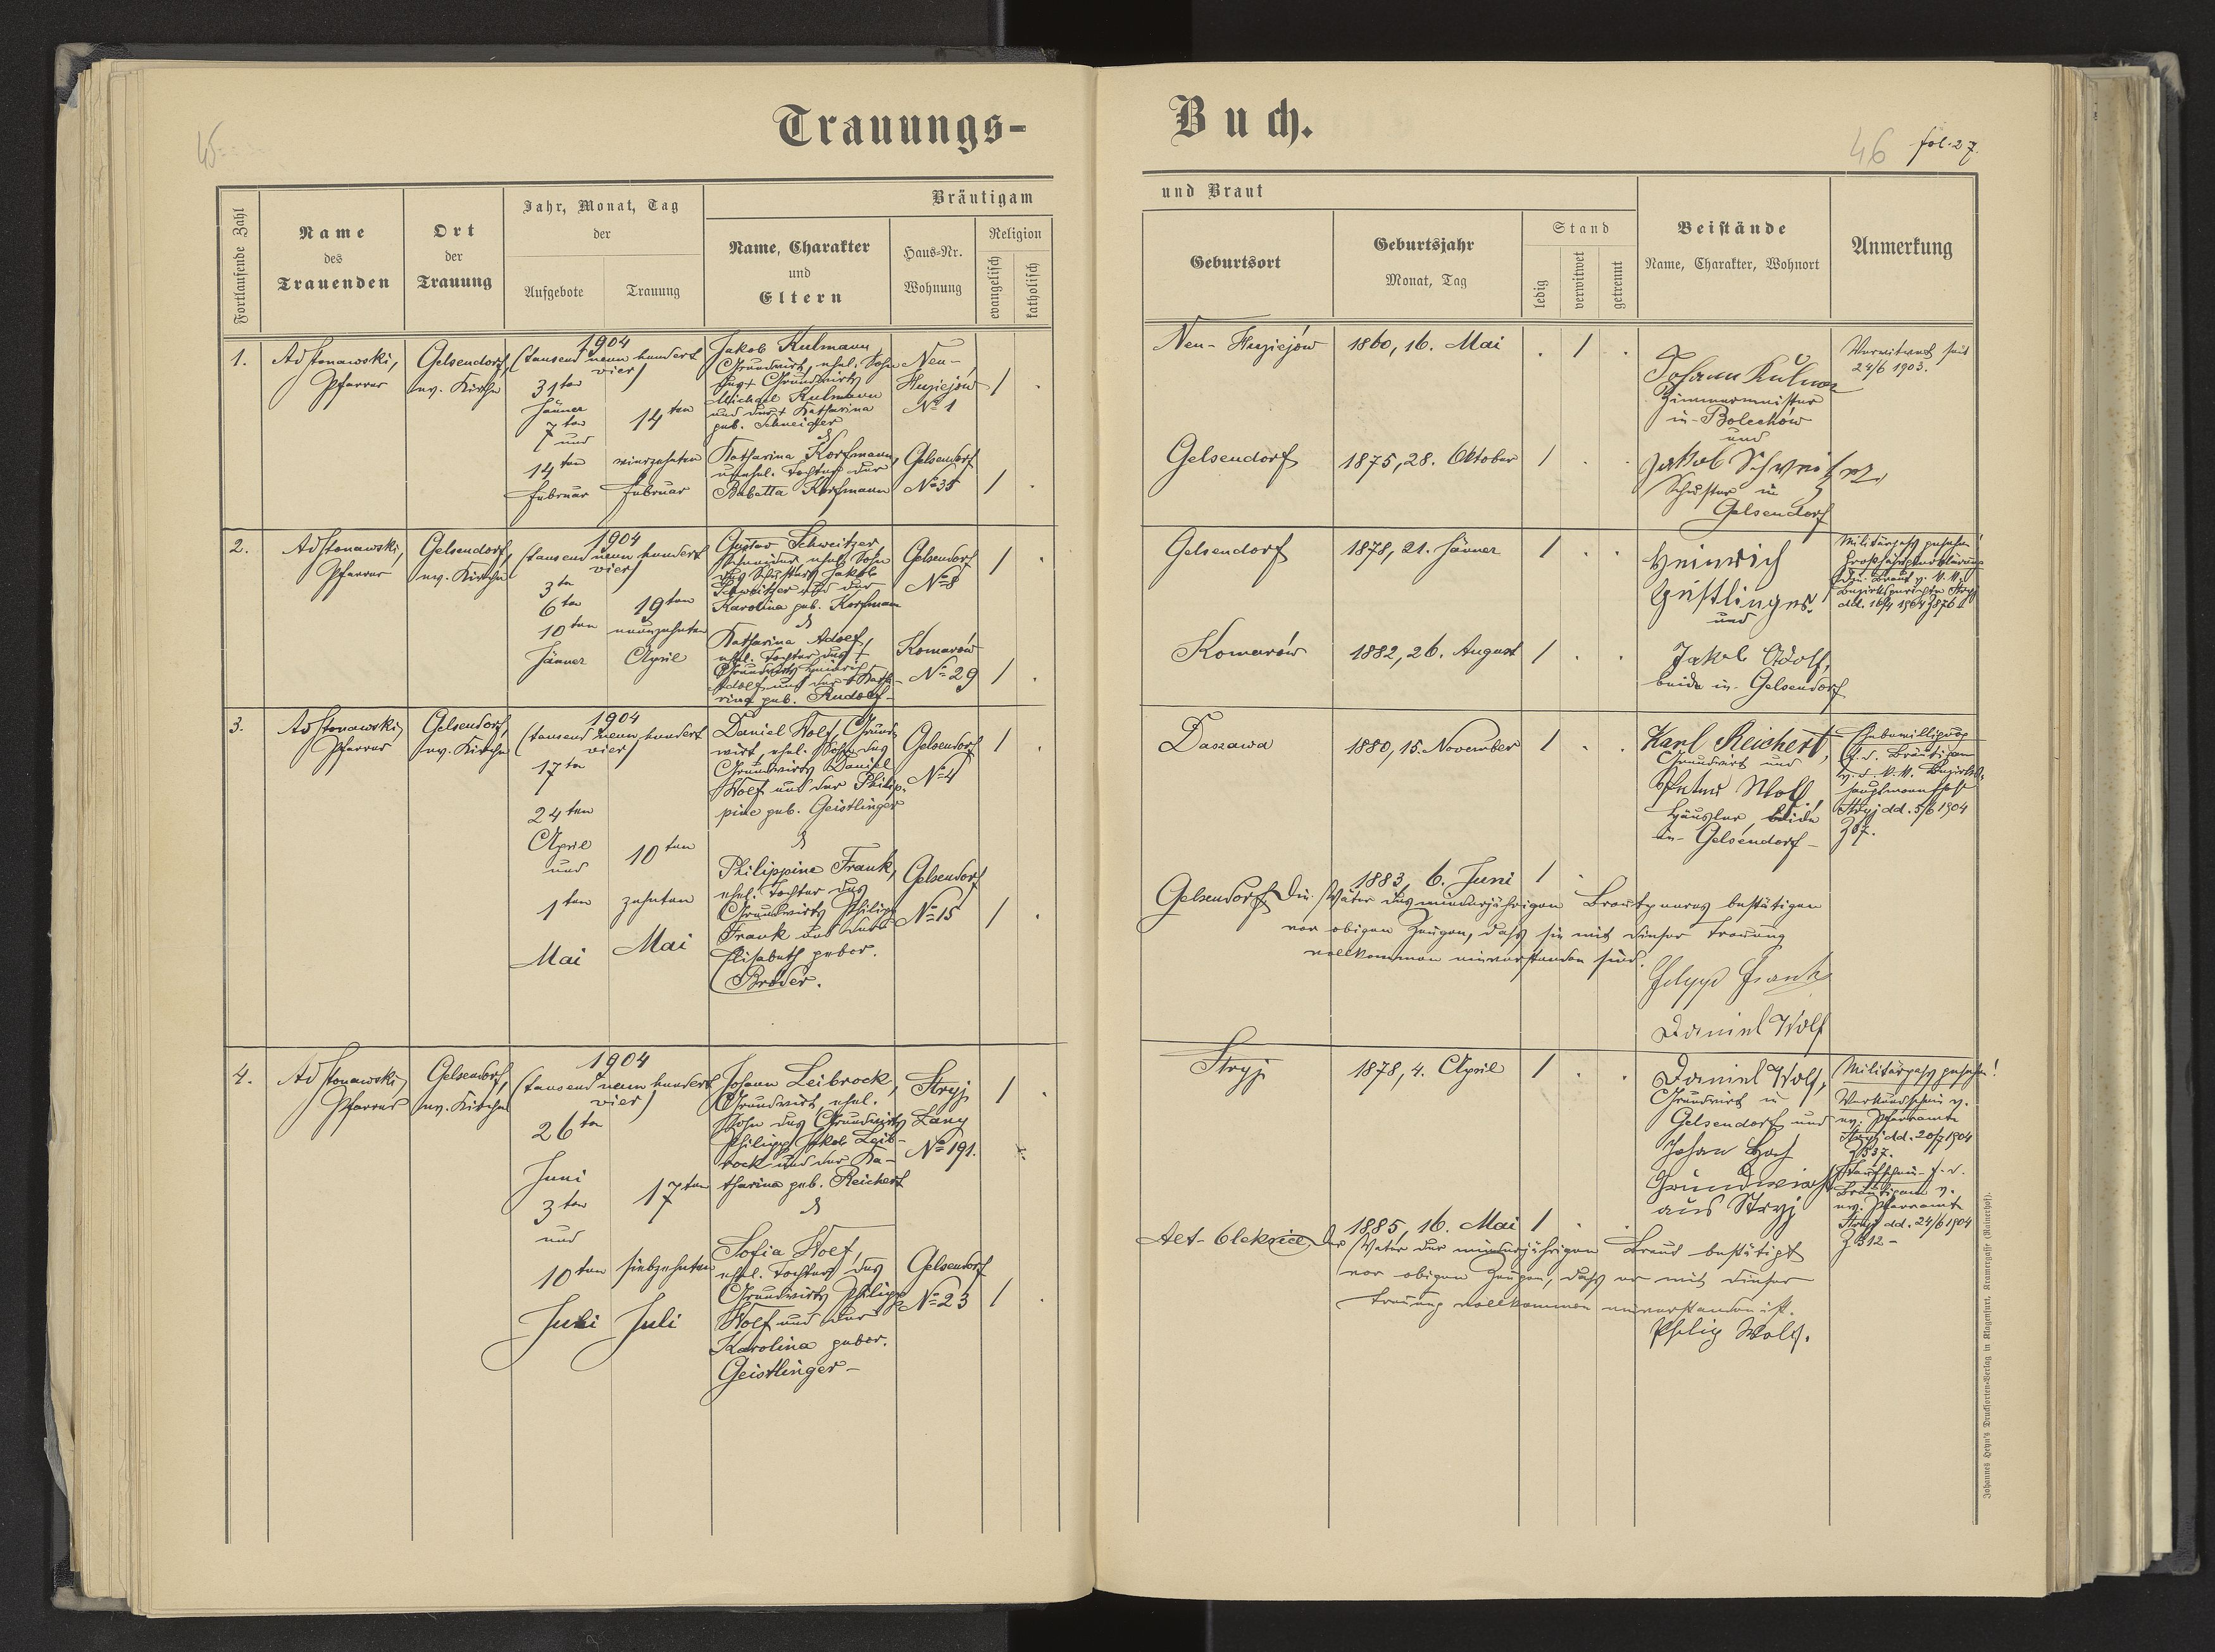 45
Trauungs-
Fortlaufende Zahl
Name
des
Trauenden
Ort
der
Trauung
Jahr, Monat, Tag
der
Aufgebote
Trauung
Bräutigam
Name, Charakter
und
Eltern
Haus-Nr.
Wohnung
Religion
evangelisch
katholisch
1.
Adstonawski,
Pfarrer
Gelsendorf,
ev. Kirche
1904
(tausend neun hundert
vier)
31ten
Jänner
7ten
und
14ten
Februar
14ten
vierzehnten
Februar
Jakob Kulmann,
Grundwirt, ehel. Sohn
des † Grundwirts
Michael Kulmann
und der † Katharina
geb. Schneider
&
Katharina Korfmann,
unehel. Tochter der
Babetta Korfmann
Neu-
Hurziejow
No 1
Gelsendorf
No 35
2.
Adstonawski,
Pfarrer
Gelsendorf,
ev. Kirche
1904
(tausend neun hundert
vier)
3ten
6ten
10ten
Jänner
19ten
neunzehnten
April
Gustav Schweitzer
Schneider, ehel. Sohn
des Schusters Jakob
Schweitzer und der
Karolina geb. Korfmann
&
Katharina Adolf,
ehel. Tochter des †
Grundwirts Heinrich
Adolf und der † Katha-
rina geb. Rudolf-
Gelsendorf
No 8
Komarów
No 29
3.
Adstonawski,
Pfarrer
Gelsendorf,
ev. Kirche
1904
(tausend neun hundert
vier)
17ten
24ten
April
und
1ten
Mai
10ten
zehnten
Mai
Daniel Wolf, Grund-
wirt, ehel. Sohn des
Grundwirts Daniel
Wolf und der Philip-
pine geb. Geistlinger
&
Philippine Frank,
ehel. Tochter des
Grundwirts Philipp
Frank und der
Elisabeth gebor.
Bröder.
Gelsendorf
No 4
Gelsendorf
No 15
4.
Adstonawski,
Pfarrer
Gelsendorf,
ev. Kirche
1904
(tausend neun hundert
vier)
26ten
Juni
3ten
und
10ten
Juli
17ten
siebzehnten
Juli
Johann Leibrock,
Grundwirt, ehel.
Sohn des Grundwirts
Philipp Jakob Leib-
rock und der Ka-
tharina geb. Reichert
&
Sofia Wolf,
ehel. Tochter des
Grundwirts Philipp
Wolf und der
Karolina gebor.
Geistlinger-
Stryj
Łany
No 191.
Gelsendorf
No 23
Buch.
46 fol. 27.
und Braut
Geburtsort
Geburtsjahr
Monat, Tag
Stand
ledig
verwitwet
getrennt
Beistände
Name, Charakter, Wohnort
Anmerkung
Neu-Hurziejow
1860, 16. Mai
Johann Kulman
Zimmermeister
in Bolechów
und
Verwitwet seit
24/6 1903.
Gelsendorf
1875, 28. Oktober
Jakob Schweitzer,
Schuster in
Gelsendorf
Gelsendorf
1878, 21. Jänner
Heinrich
Geistlinger
und
Militärpass gesehen!
Großjährigkeitserklärung
der Braut v. k. k.
Bezirksgerichte Stryj
Komarów
1882, 26. August
Jakob Adolf,
beide in Gelsendorf
Daszawa
1880, 15. November
Karl Reichert,
Grundwirt und
Peter Wolf,
Häusler, beide
in Gelsendorf-
Ehebewilligung
f. d. Bräutigam
v. d. k. k. Bezirks-
hauptmannschaft
Stryj dd. 5/6 1904
Z 87.
1883, 6. Juni
Gelsendorf
Die Väter des minderjährigen Brautpaares bestätigen
vor obigen Zeugen, dass sie mit dieser Trauung
vollkommen einverstanden sind.
Frank
Daniel Wolf
Stryj
1878, 4. April
Daniel Wolf,
Grundwirt in
Gelsendorf und
Johan
Grundwirt
aus Stryj
Militärpass gesehen!
Verkündschein v.
ev. Pfarramte
Stryj dd. 20/7 1904
Z 537.
Taufschein f. d.
Bräutigam v.
ev. Pfarramte
Stryj dd. 24/6 1904
Z 512-
1885, 16. Mai
Alt-Oleksice
Der Vater der minderjährigen Braut bestätigt
vor obigen Zeugen, dass er mit dieser
Trauung vollkommen einverstanden ist.
Philip Wolf.
Johannes Heyn's Drucksorten-Verlag in Klagenfurt, Kramergasse (Rainerhof).